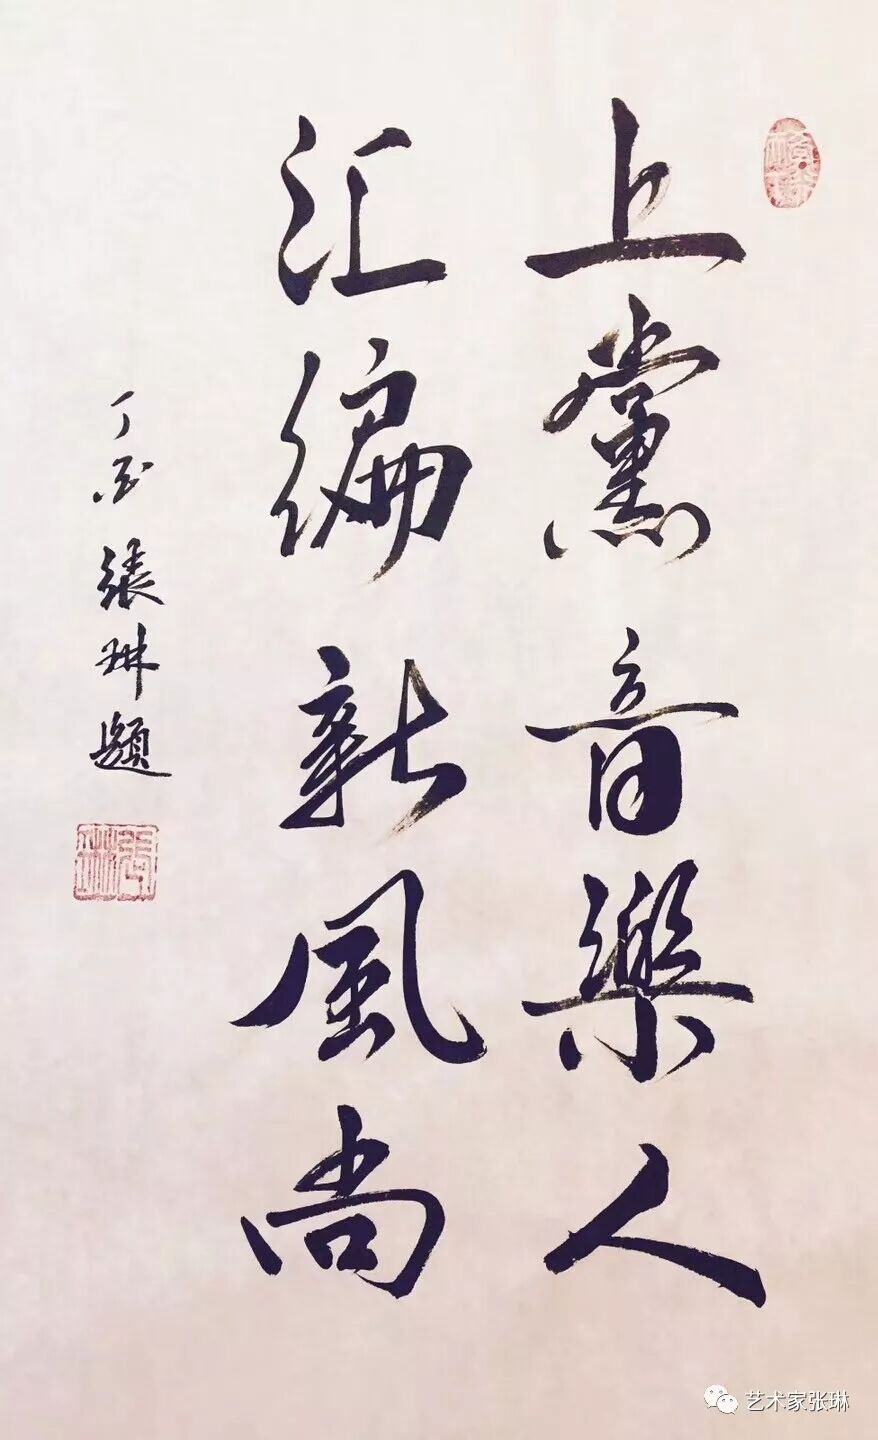 上黨音樂人
汇编新風尚
丁酉張琳題
張琳
艺术家张琳